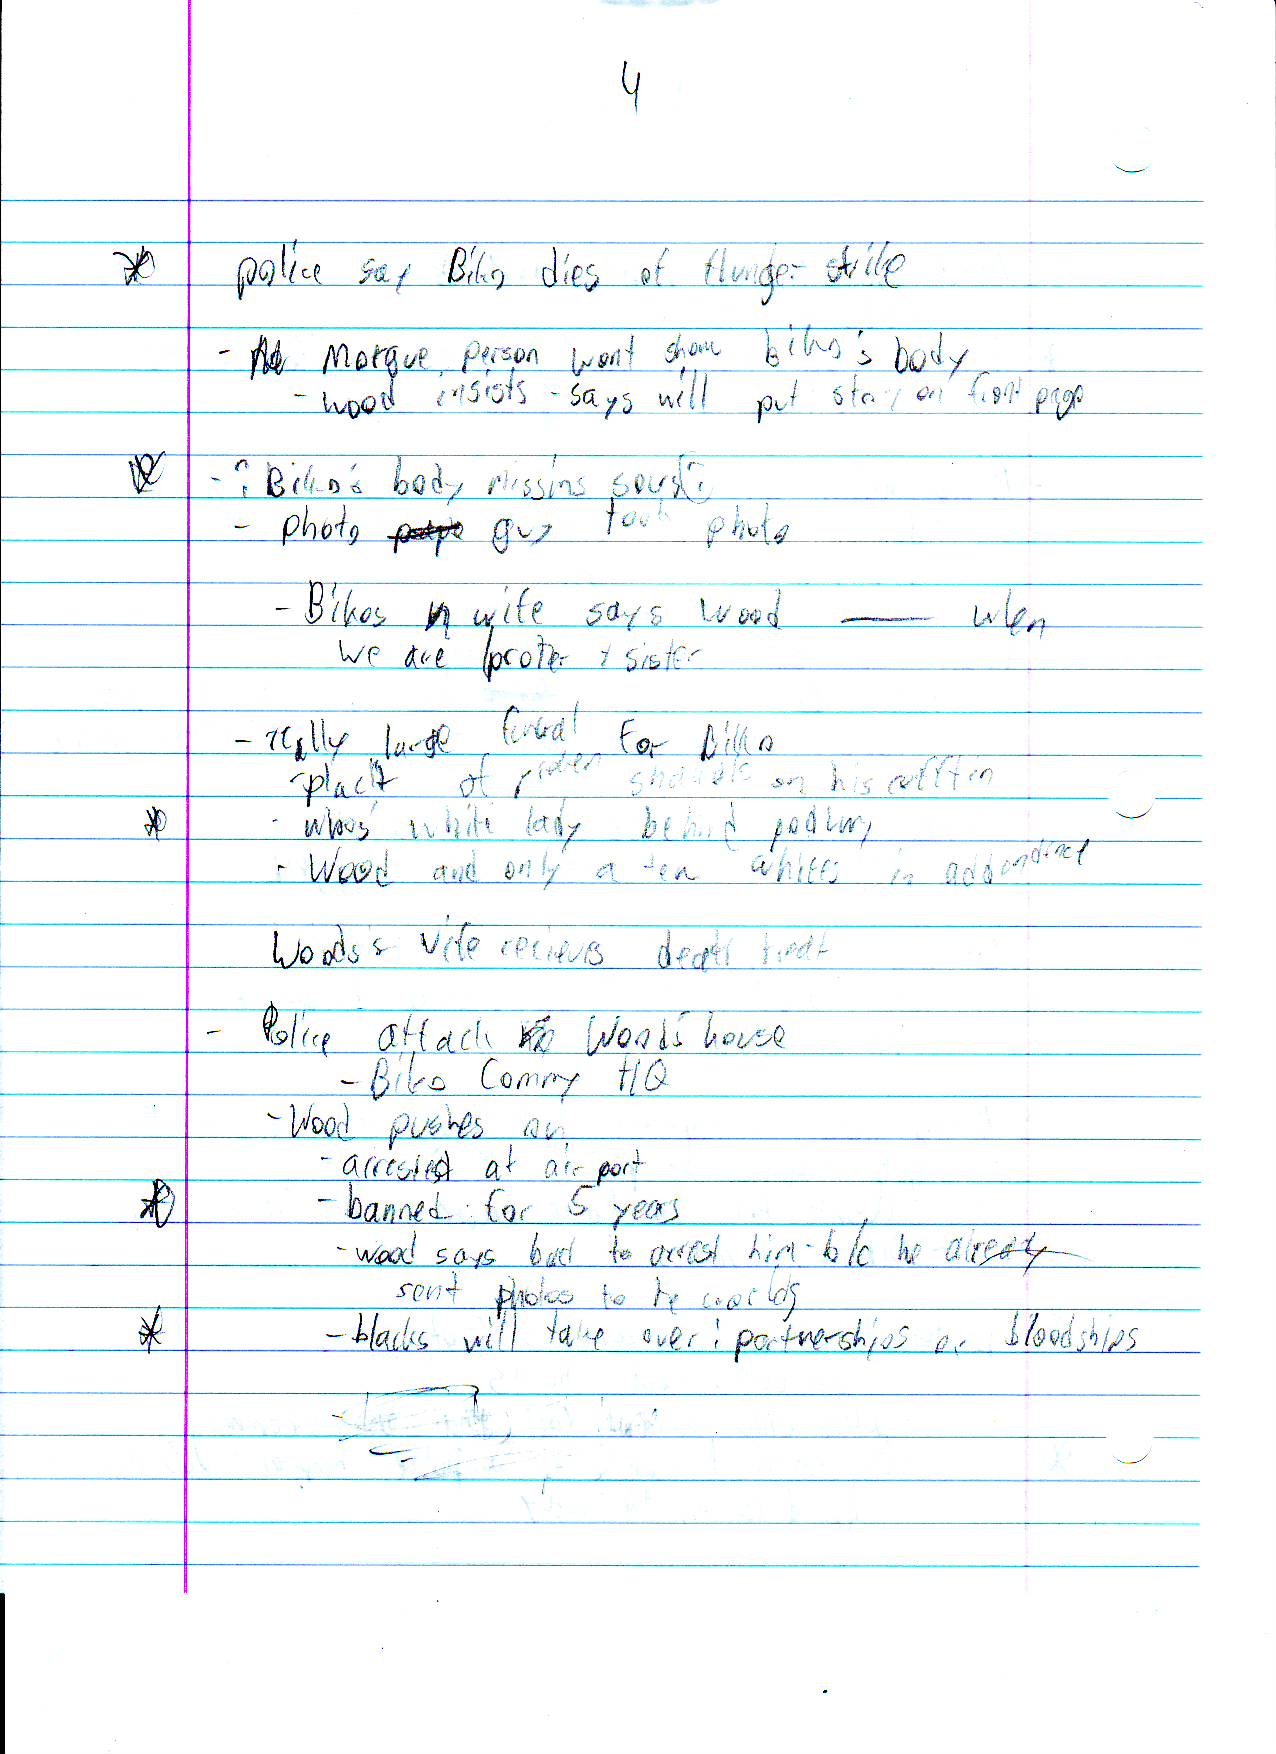 4
* police say Biko dies of Hunger strike
- Morgue person wont show biko's body
- wood insists - says will put story on front page
* - Biko's body missing
- photo guy took photo
- Bikos wife says wood —— when
we are broter + sister
- really large funeral for Biko
- plack of on his
* - whos white lady behind podium
- Wood and only a few whites in
Woods's wife recieves death
- Police attack Wood's house
- Biko Commy HQ
- Wood pushes on
- arrested at airport
* - banned for 5 years
- wood says bad to arrest him - b/c he already
sent photos to te
* - blacks will take over: partnerships or bloodships